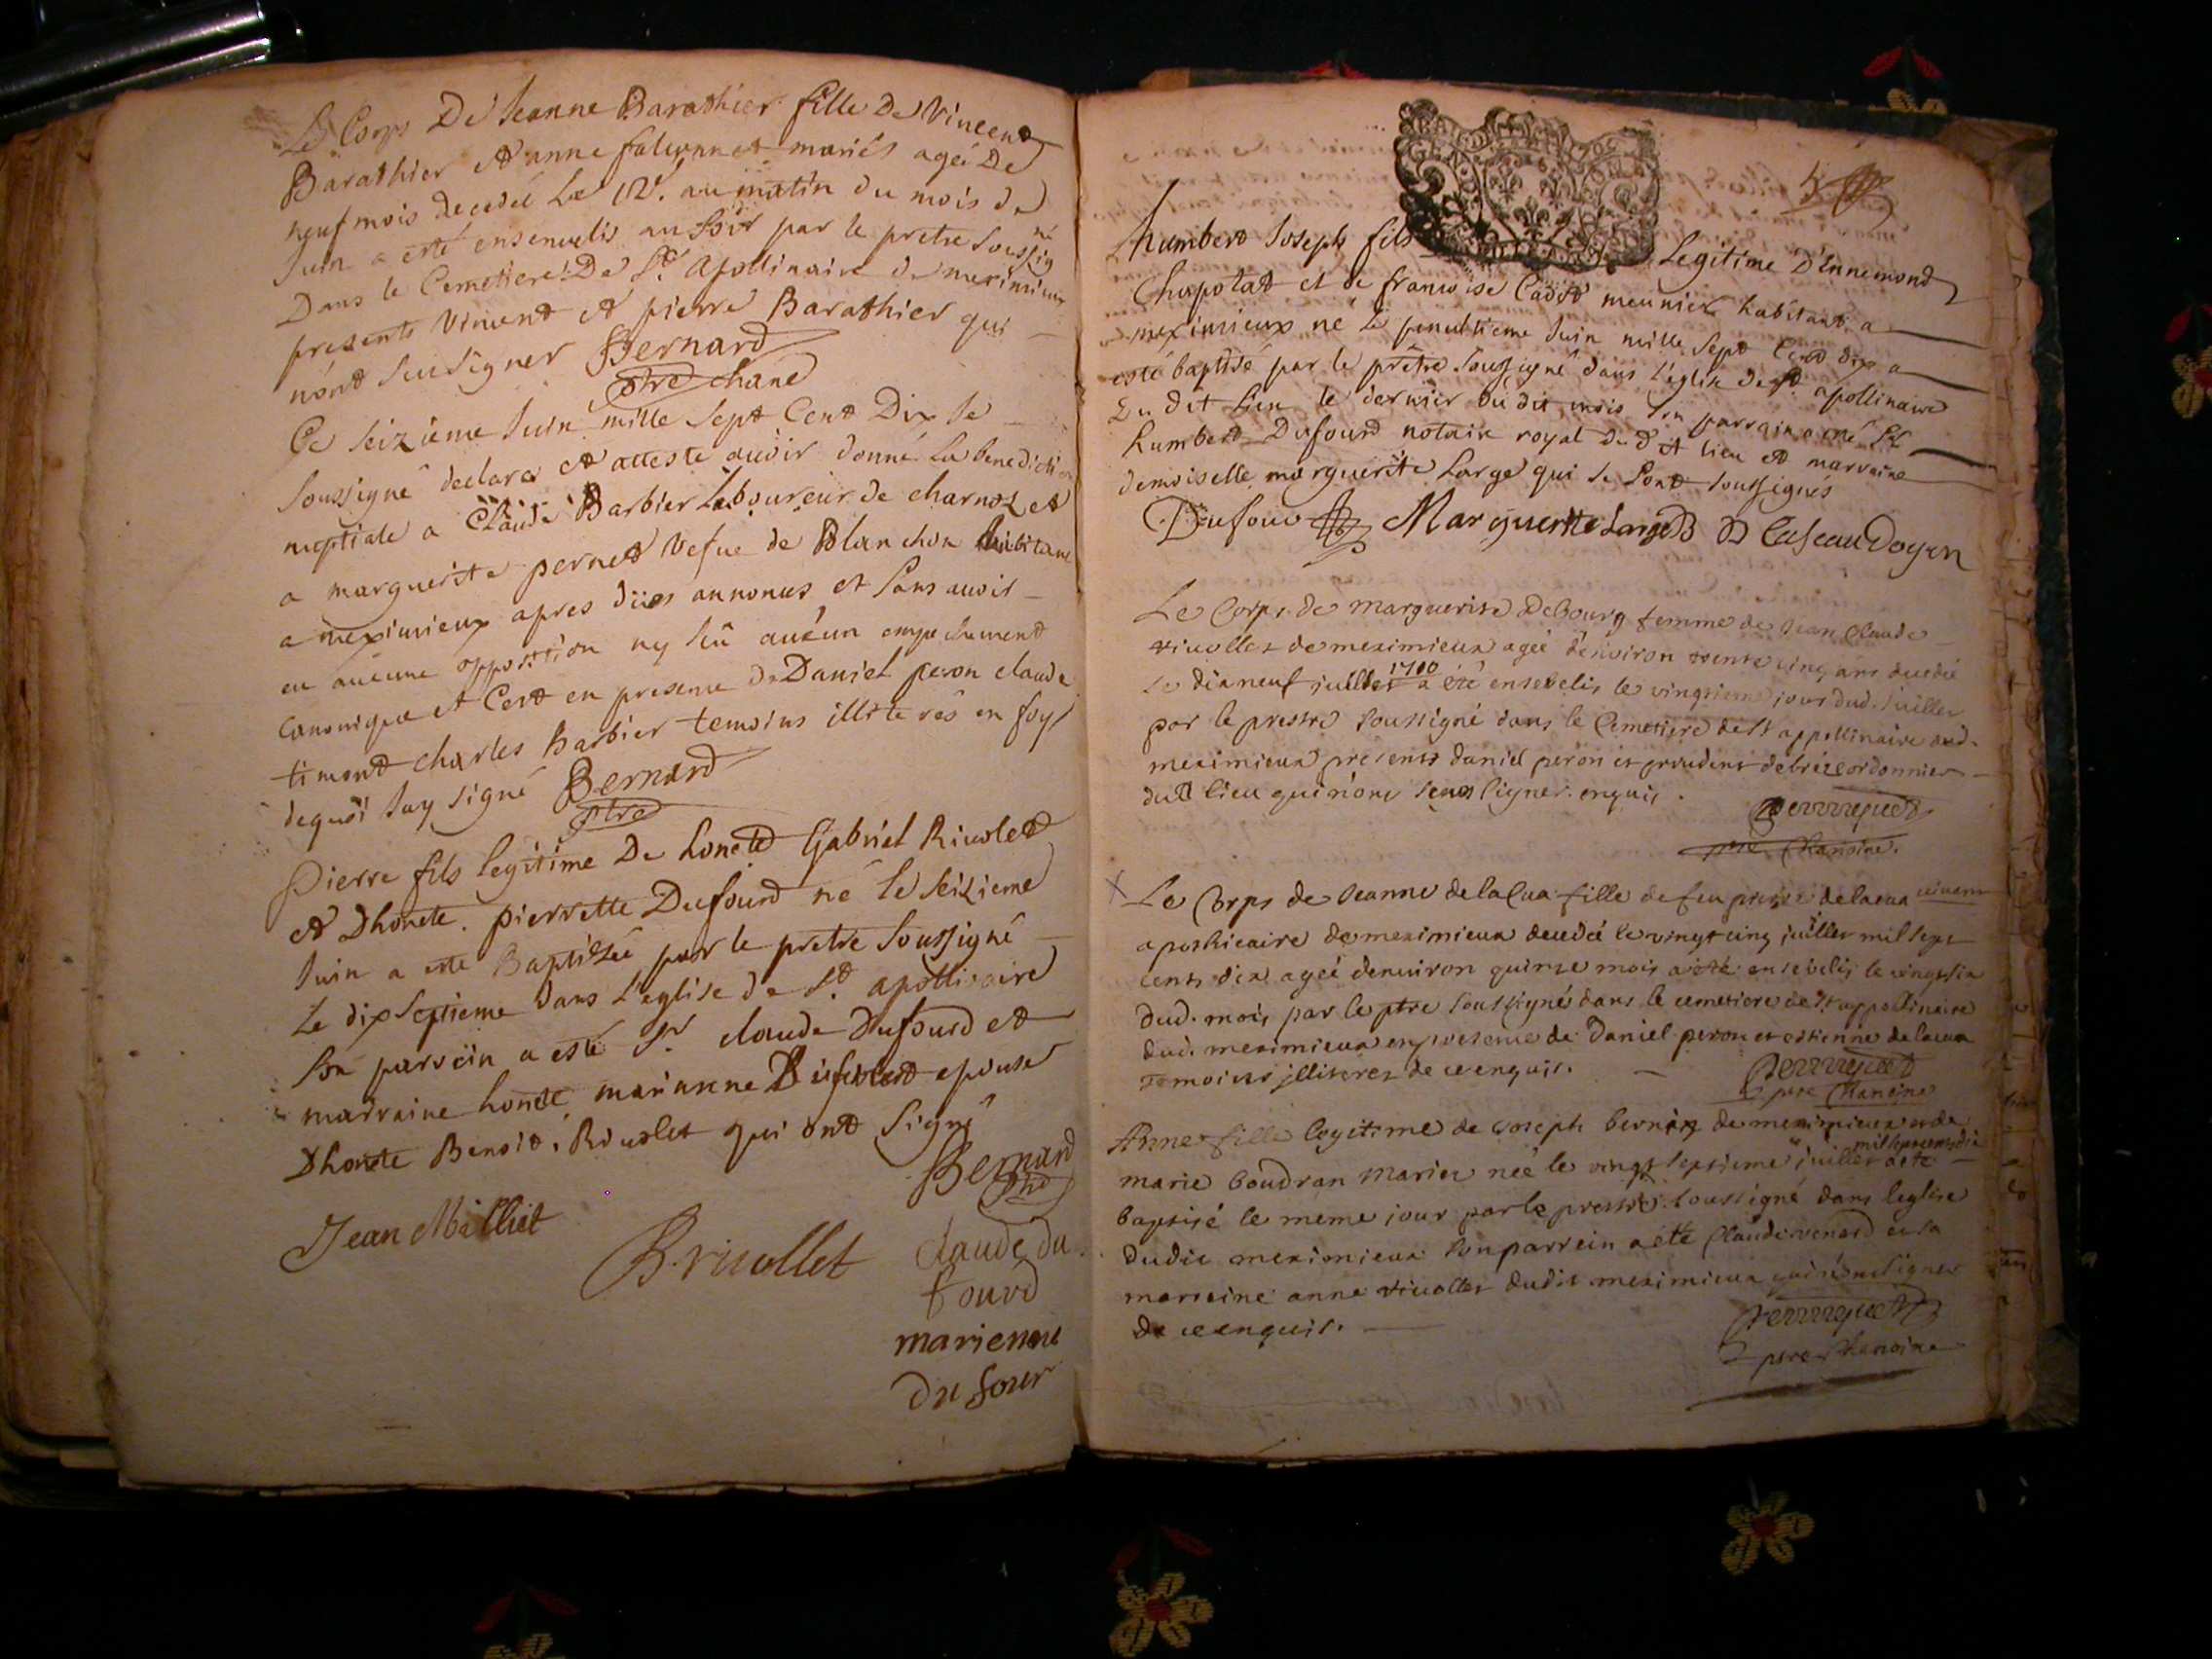 Le Corps De Jeanne Barathier fille De Vincent
Barathier et anne falconnet mariés agée De
neuf mois decedée Le 12e. au matin du mois de
Juin a esté ensevelis au soir par le pretre soussigné
Dans le Cemetiere De St apollinaire de meximieux
presents Vincent et pierre Barathier qui —
n'ont sceu signer Bernard
ptre chane
Ce seizième Juin mille sept Cent Dix Je —
soussigné declare et atteste avoir donné La benediction
nuptiale a Claude Barbier Laboureur de charnoz et
a marguerite pernet Vefue de Blanchon habitant
a meximieux apres annonces et sans avoir —
eu aucune opposition ny sçu aucun empechement
canonique et C'est en presence de Daniel peron claude
timont charles Barbier temoins illiterés en foy
dequoi Jay signé Bernard
ptre
Pierre fils legitime De honete Gabriel Rivolet
et D'honete. pierrette Dufourd né le seizieme
Juin a esté Baptisée par le pretre soussigné —
Le dix septieme dans l'eglise de St. apollinaire
son parrein a esté Sr. claude Dufourd et
marraine honete marianne Dufourd epouse
D'honete Benoit Rivolet qui ont signé
Bernard
ptre
Jean Milliet
B. rivollet
claude du
fourd
marienne
du four
humbert Joseph fils Legitime D'Ennemond
Chapotat et de francoise Cadot meunier habitant a
meximieux né le penultieme Juin mille sept Cent dix a
esté baptisé par le prêtre soussigné dans l'eglise de St apollinaire
Du dit Lieu le dernier du dit mois son parrain a été Sr
humbert Dufourd notaire royal du dit lieu et marraine
demoiselle marguerite Large qui se sont soussignés
Dufour Marguerite Large Caseau Doyen
Le Corps de marguerite Debourg femme de Jean Claude
rivollet de meximieux agée d'environ trente cinq ans decedée
le dixneuf juillet 1710 a été ensevelis le vingtieme jour dud. juillet
par le prestre soussigné dans le Cemetiere de St appollinaire dud.
meximieux presents daniel peron et prudent debrée cordonnier
dud lieu qui n'ont signer. enquis.
perrequet
ptre Chanoine.
x Le Corps de Jeanne delacua fille de feu pierre delacua vivant
apothicaire de meximieux decedée le vingt cinq juillet mil sept
cents dix agée denviron quinze mois a été ensevelis le vingtsix
dud. mois par le ptre soussigné dans le cemetiere de St appollinaire
dud. meximieux en presence de Daniel peron et estienne delacua
temoins illiteres de ce enquis. —
perrequet
ptre Chanoine
Anne fille legitime de Joseph bernin de meximieux et de
mil sept cents dix
marie boudran mariés née le vingt septieme juillet a été —
baptisé le meme jour par le prestre soussigné dans leglise
dudit meximieux son parrein a été Claude venard et sa
marreine anne rivollet dudit meximieux qui n'ont signer
de ce enquis. —
perrequet
ptre Chanoine